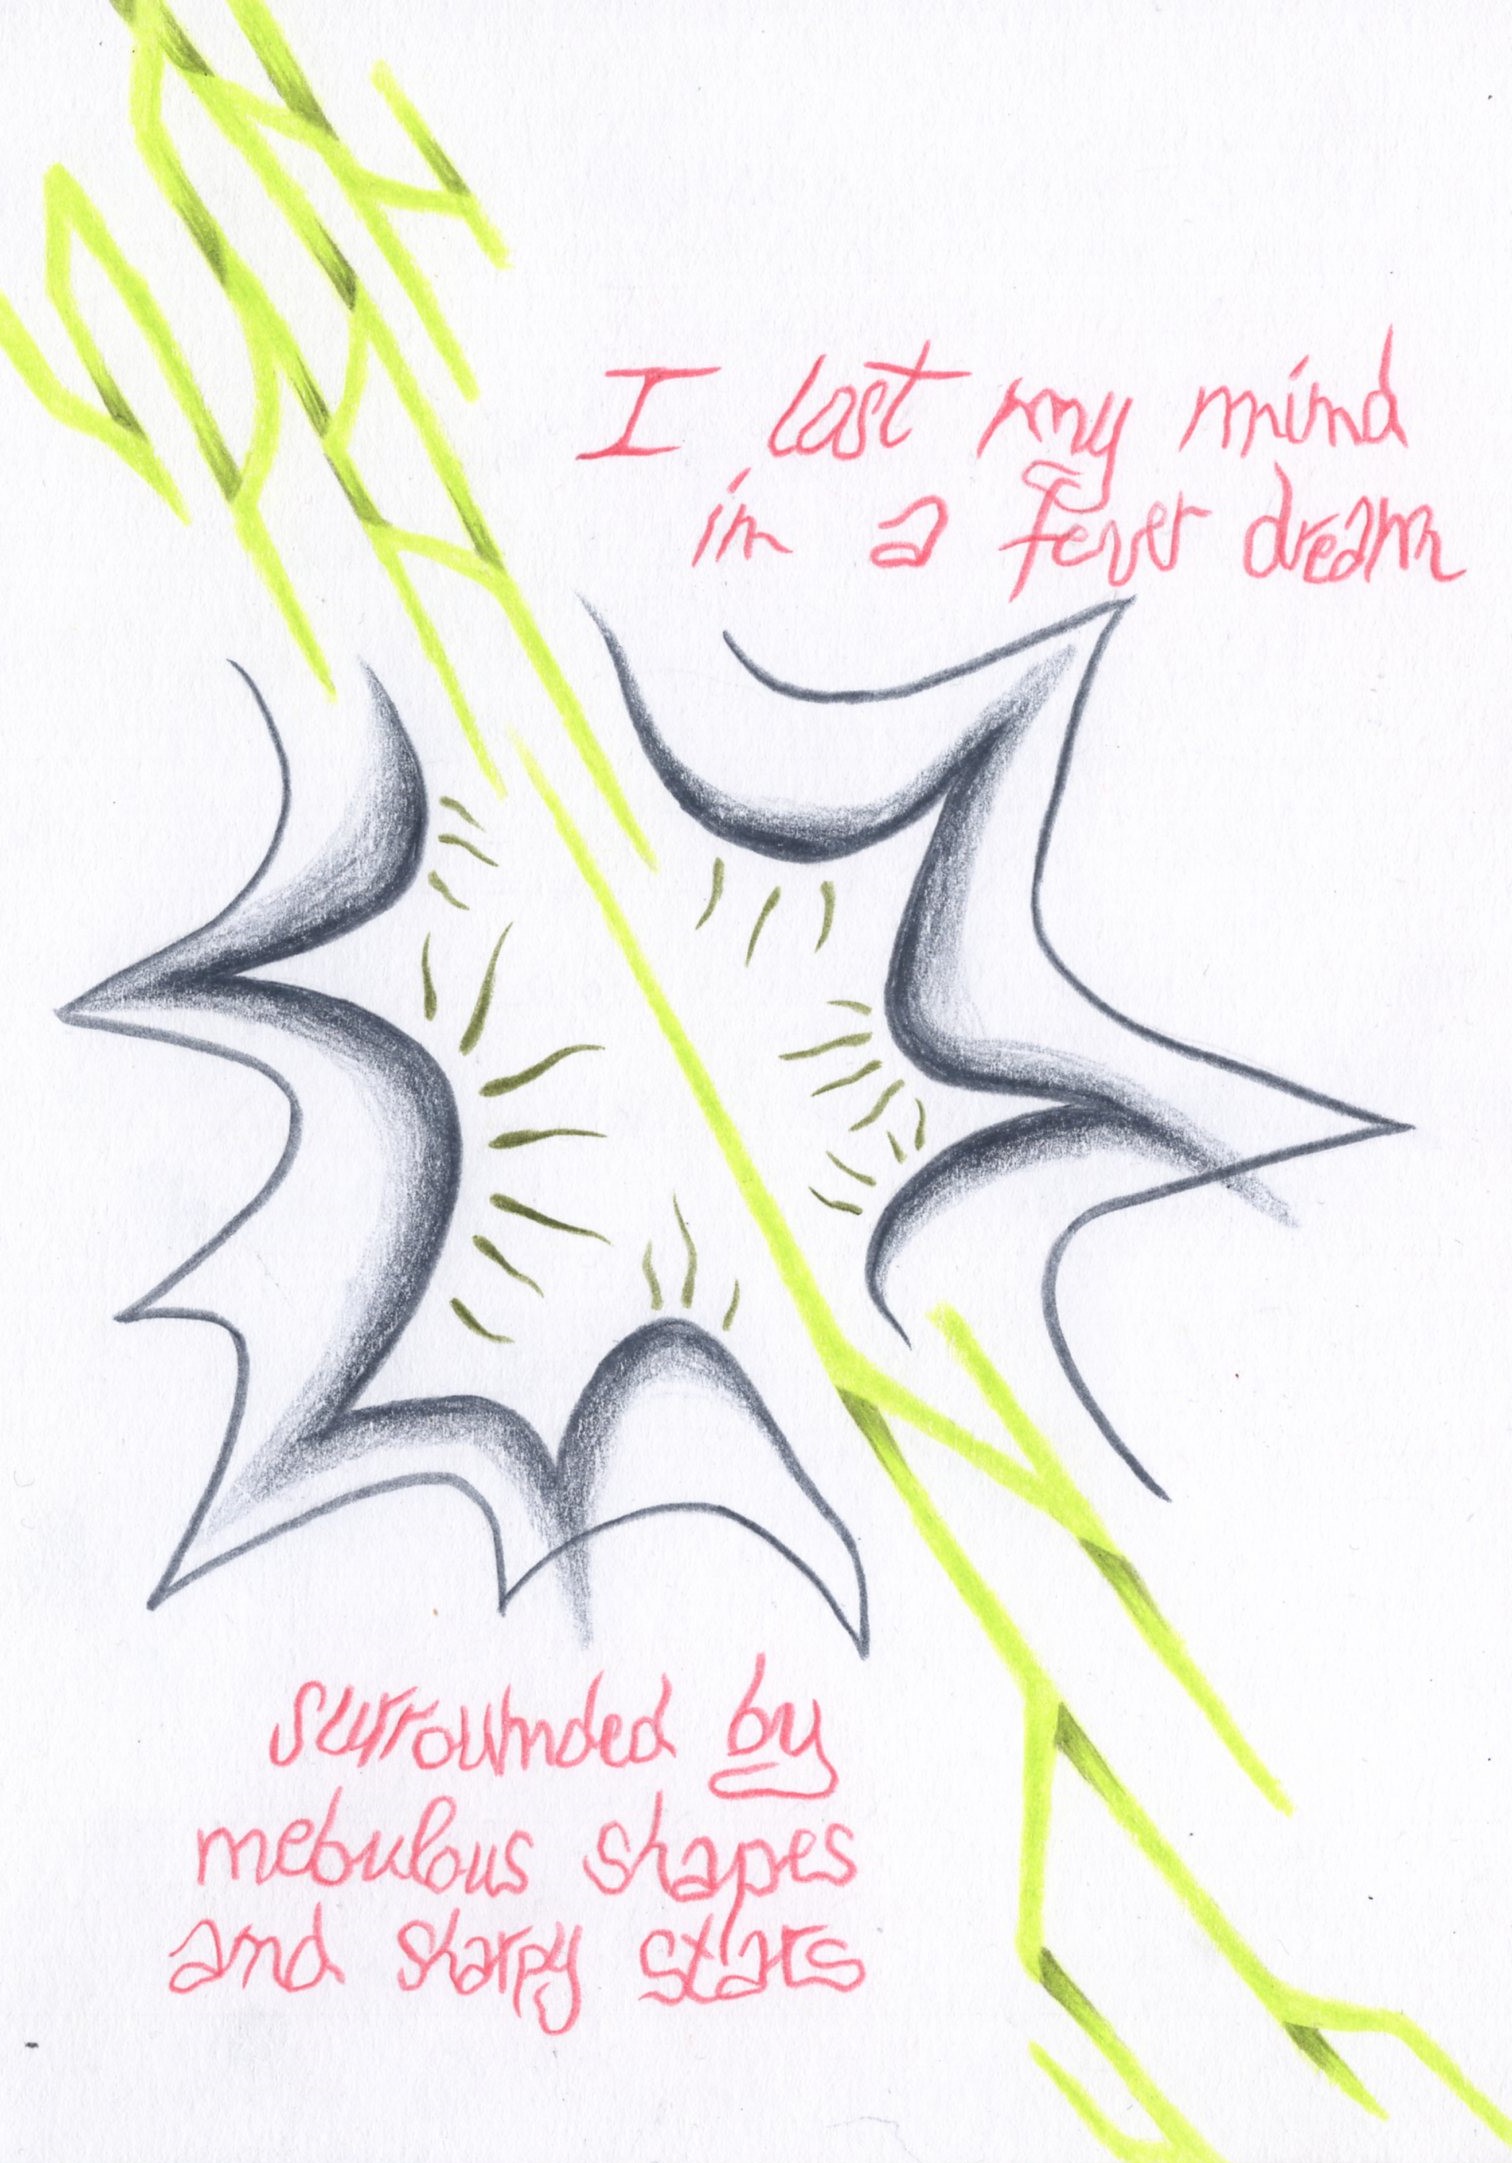 I lost my mind
in a fever dream
surrounded by
nebulous shapes
and sharpy stars